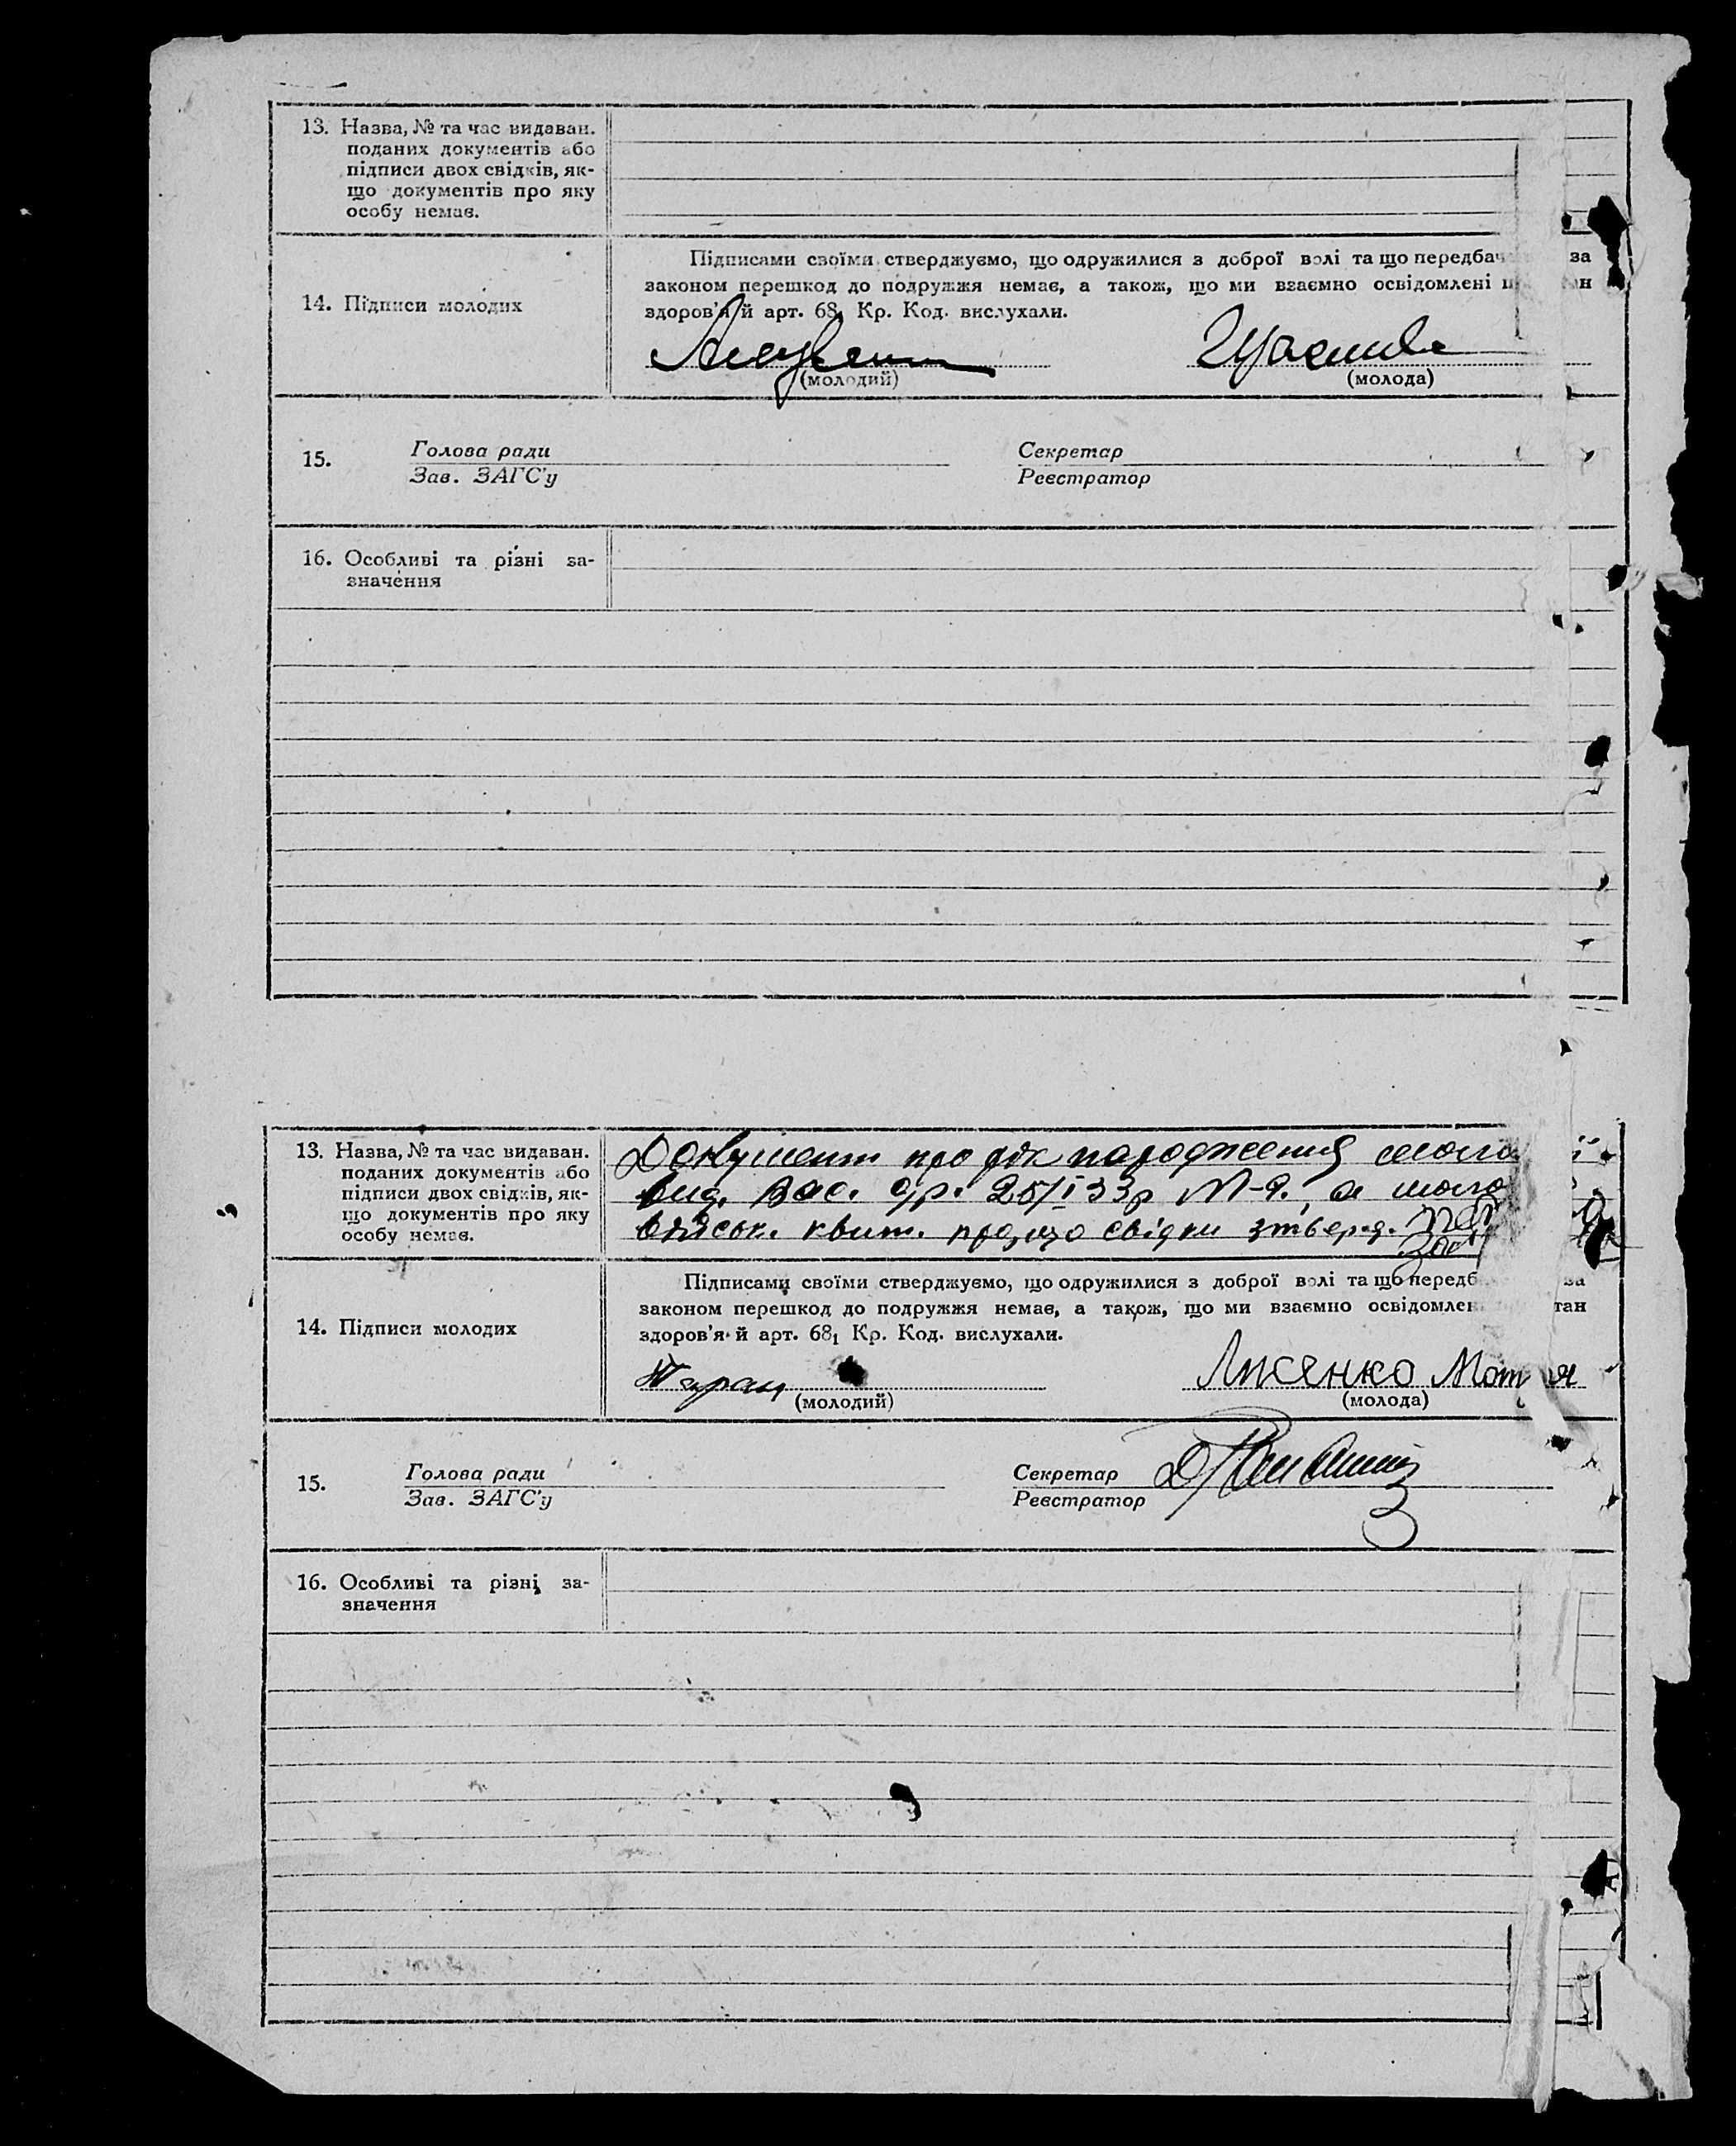 13. Назва, № та час видаван.
поданих документів або
підписи двох свідків, як-
що документів про яку
особу немає.
14. Підписи молодих
Підписами своїми стверджуємо, що одружилися з доброї волі та що передбач за
законом перешкод до подружжя немає, а також, що ми взаємно освідомлені
здоров'я й арт. 68₁ Кр. Код. вислухали.
(молодий) (молода)
15. Голова ради Секретар
Зав. ЗАГС'у Реєстратор
16. Особливі та різні за-
значення
13. Назва, № та час видаван.
поданих документів або
підписи двох свідків, як-
що документів про яку
особу немає.
Документ про рік народження
вид. Вас. с/р. 25/I 33р а
військ. квит. про що свідки
14. Підписи молодих
Підписами своїми стверджуємо, що одружилися з доброї волі та що передб за
законом перешкод до подружжя немає, а також, що ми взаємно освідомлен тан
здоров'я й арт. 68₁ Кр. Код. вислухали.
Таран Лисенко
(молодий) (молода)
15. Голова ради Секретар
Зав. ЗАГС'у Реєстратор
16. Особливі та різні за-
значення